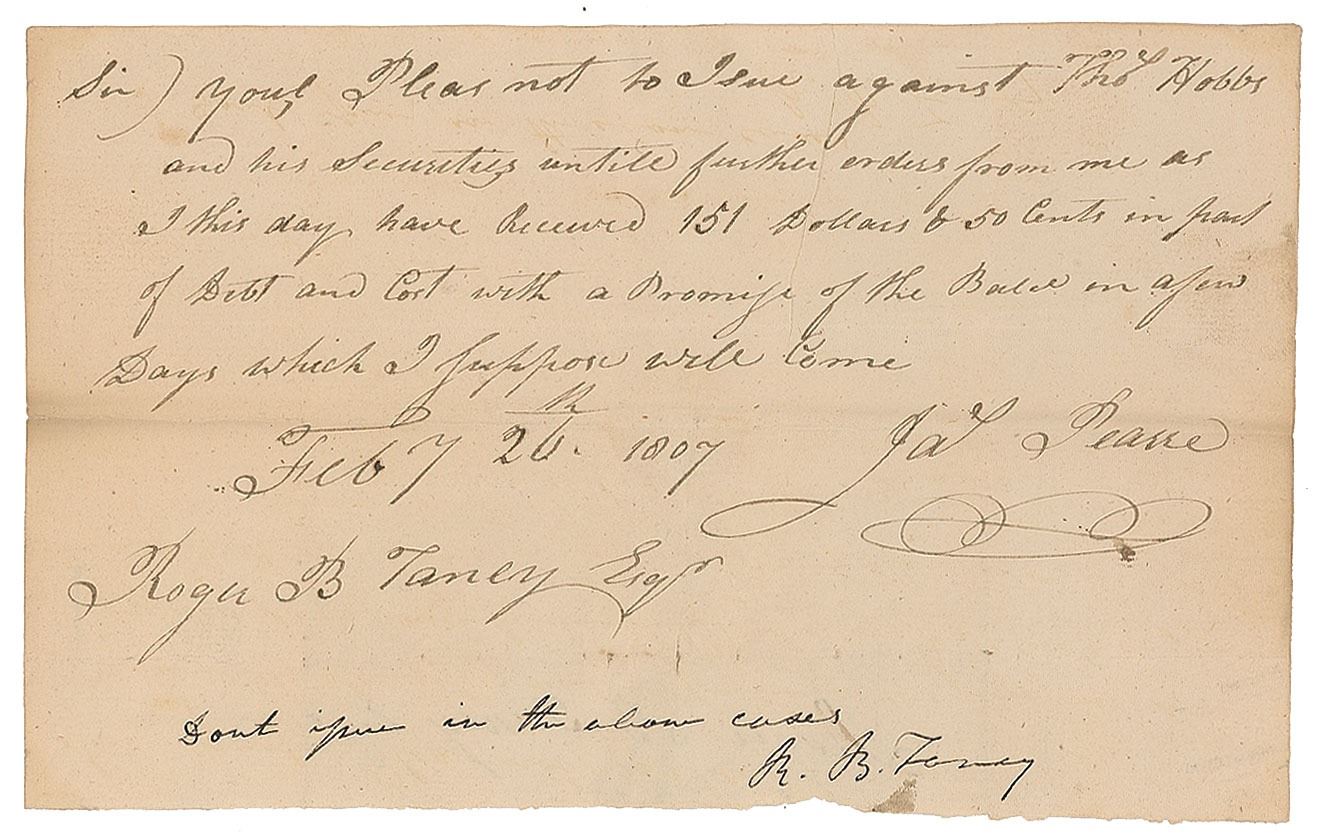 Sir) youl Pleas not to Isue against Thos Hobbs
and his Securities untill further orders from me as
I this day have Received 151 Dollars & 50 Cents in part
of Debt and Cost with a Promise of the Balce in a few
Days which I suppose will Come
Feby 26th. 1807 Jas Pearre
Roger B Taney Esqr
Dont issue in the above cases
R. B. Taney